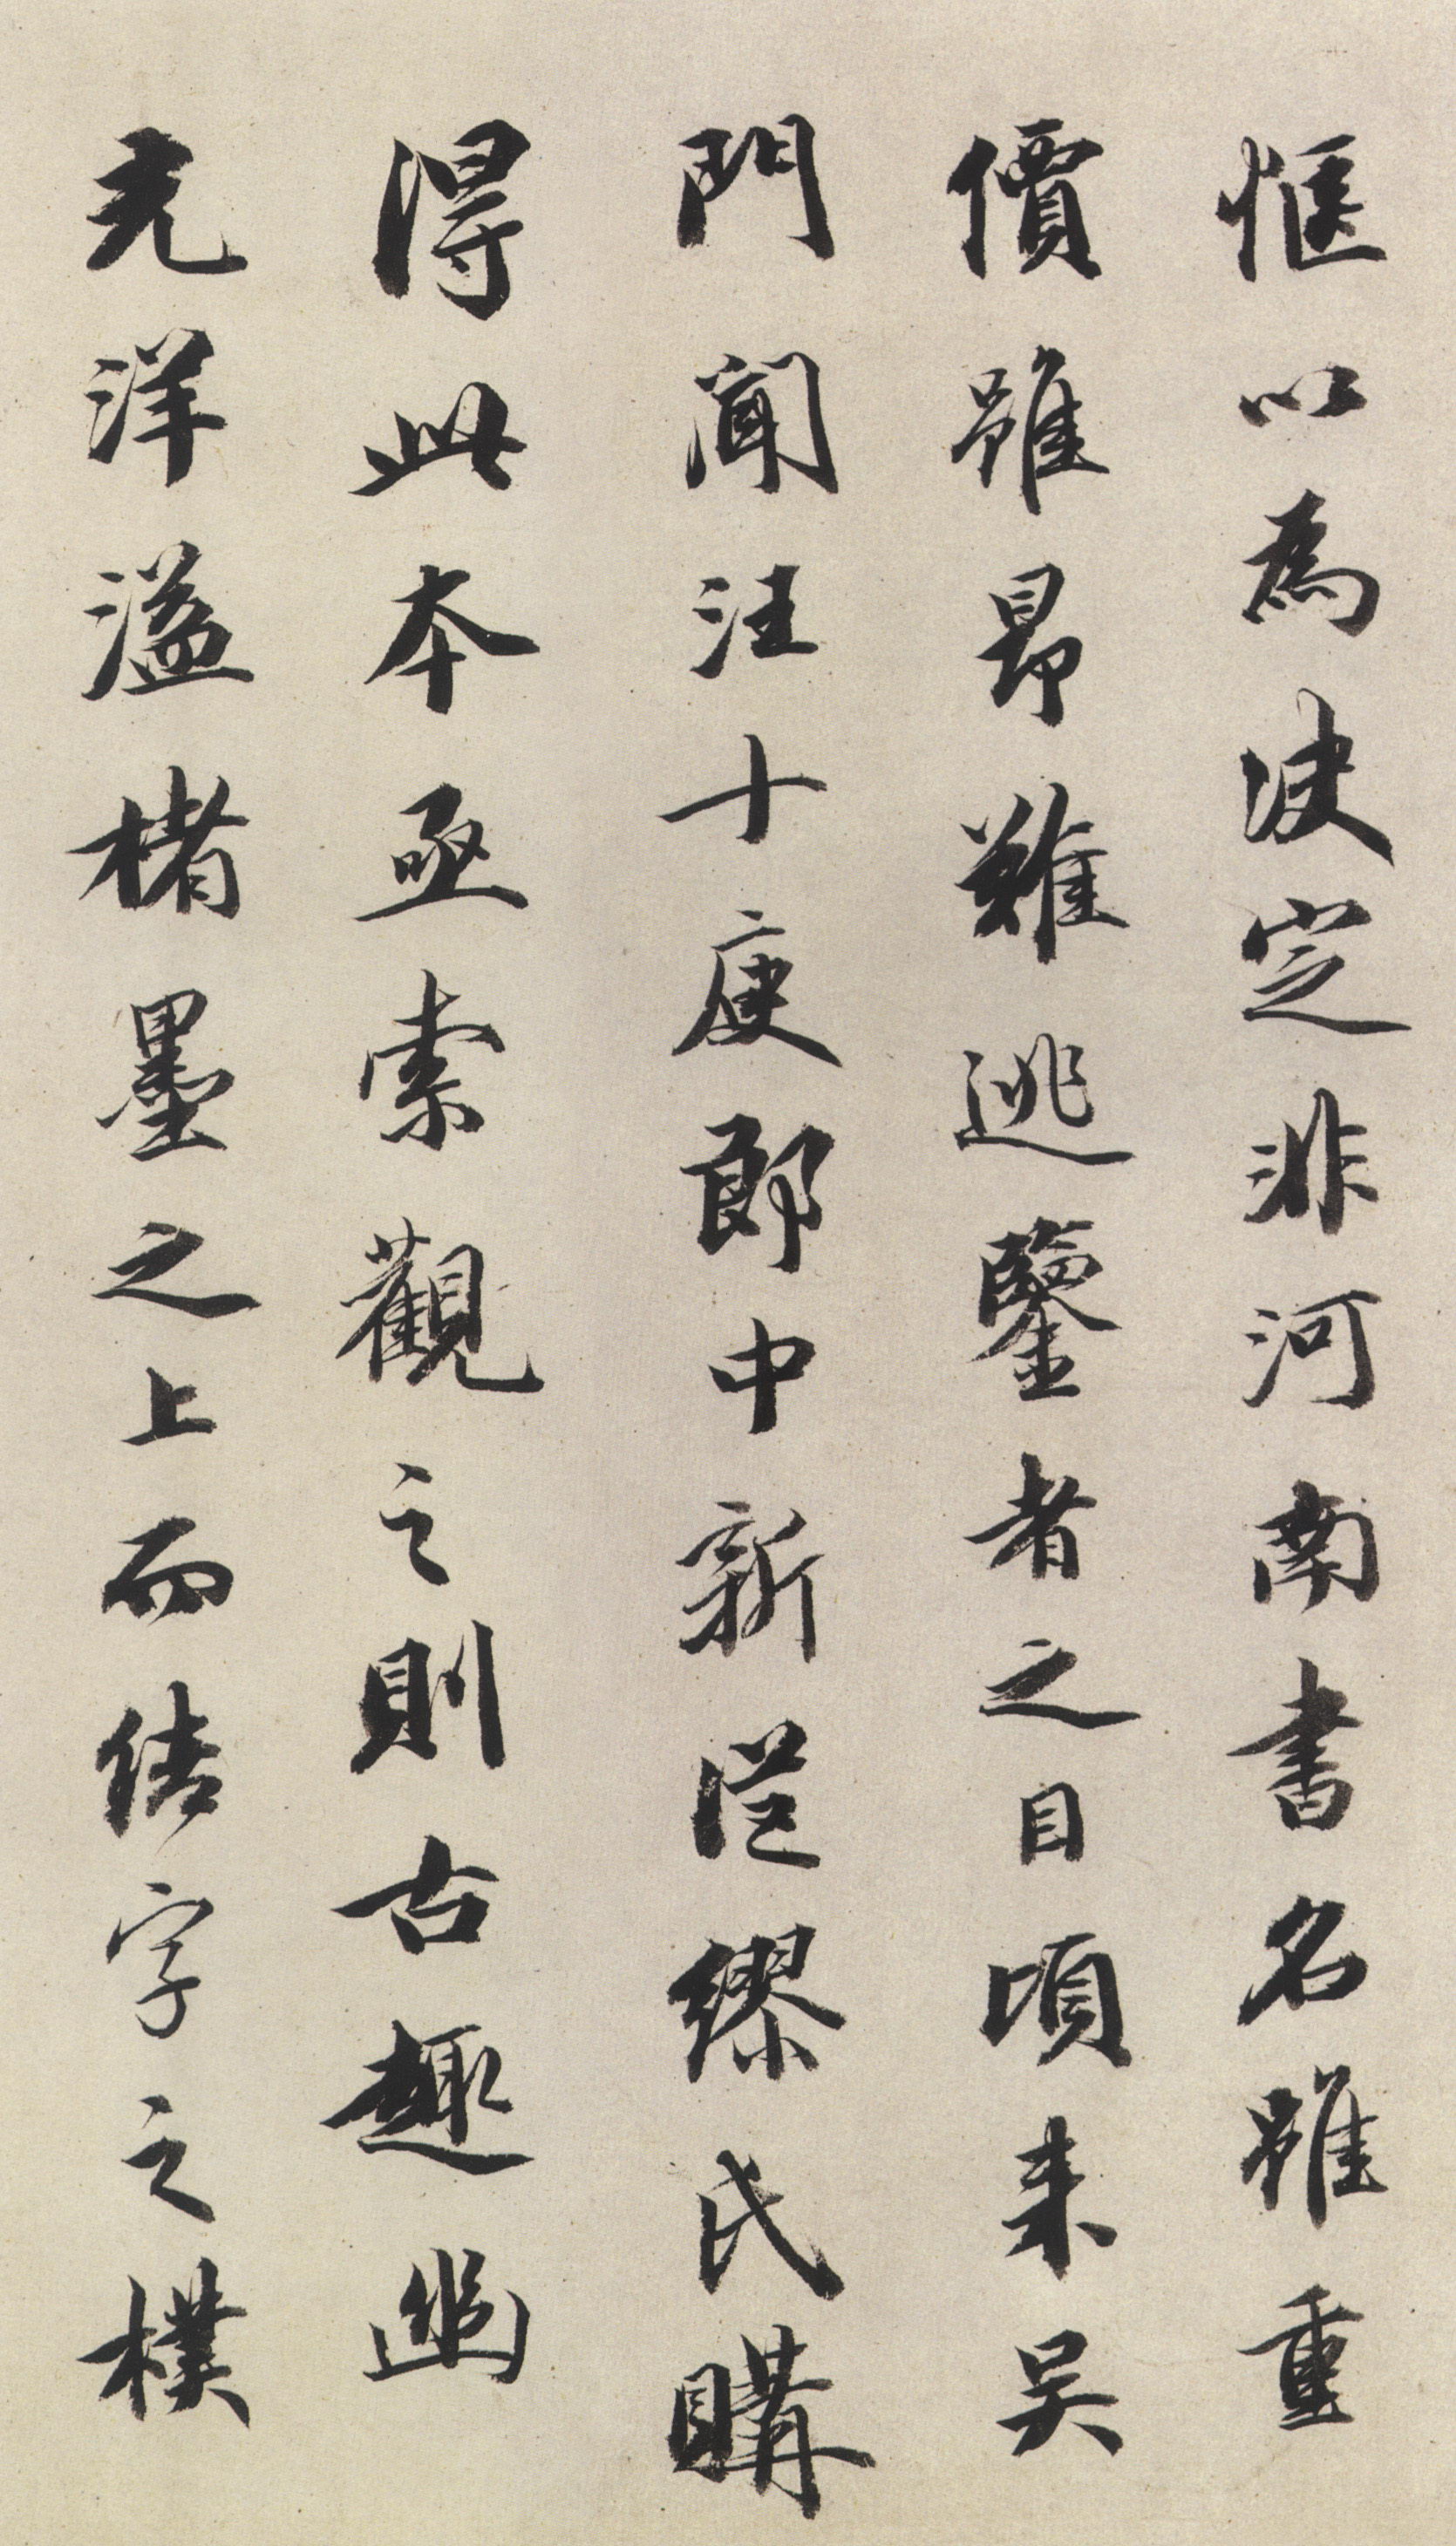 愜以為決定非河南書名雖重
價雖昂難逃鑒者之目頃來吳
門聞汪十庚郎中新從繆氏購
得此本亟索觀之則古趣幽
光洋溢楮墨之上而結字之樸